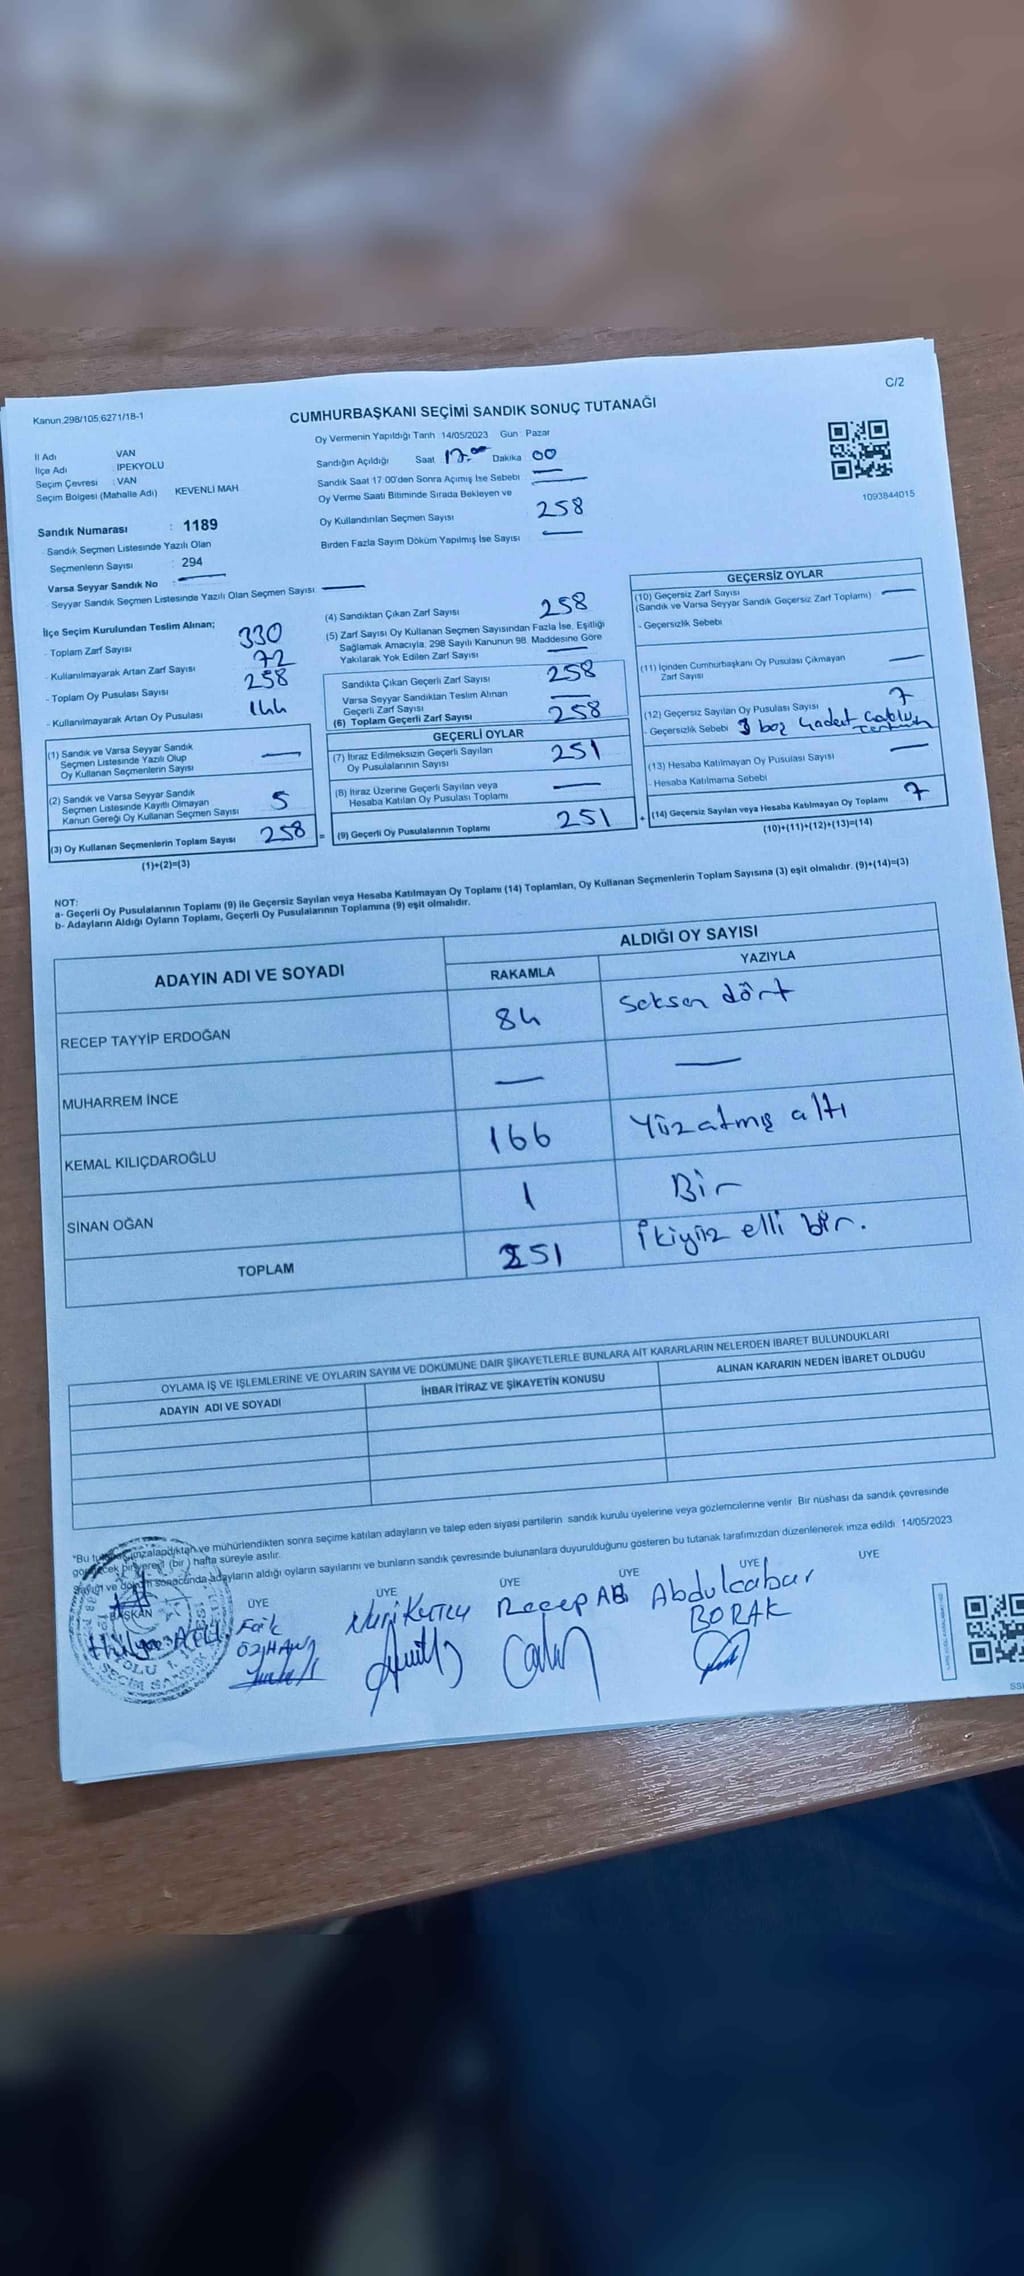 C/2
Kanun 298/105,6271/18-1
CUMHURBAŞKANI SEÇİMİ SANDIK SONUÇ TUTANAĞI
İl Adı VAN
İlçe Adı İPEKYOLU
Seçim Çevresi : VAN
Seçim Bölgesi (Mahalle Adı) KEVENLİ MAH
Sandık Numarası : 1189
Sandık Seçmen Listesinde Yazılı Olan
Seçmenlerin Sayısı : 294
Varsa Seyyar Sandık No :
Seyyar Sandık Seçmen Listesinde Yazılı Olan Seçmen Sayısı
Oy Vermenin Yapıldığı Tarih 14/05/2023 Gün : Pazar
Sandığın Açıldığı Saat 17.00 Dakika 00
Sandık Saat 17 00'den Sonra Açımış İse Sebebi
Oy Verme Saati Bitiminde Sırada Bekleyen ve
Oy Kullandırılan Seçmen Sayısı 258
Birden Fazla Sayım Döküm Yapılmış İse Sayısı
1093844015
İlçe Seçim Kurulundan Teslim Alınan;
- Toplam Zarf Sayısı 330
- Kullanılmayarak Artan Zarf Sayısı 72
- Toplam Oy Pusulası Sayısı 258
- Kullanılmayarak Artan Oy Pusulası 144
(1) Sandık ve Varsa Seyyar Sandık
Seçmen Listesinde Yazılı Olup
Oy Kullanan Seçmenlerin Sayısı
(2) Sandık ve Varsa Seyyar Sandık
Seçmen Listesinde Kayıtlı Olmayan
Kanun Gereği Oy Kullanan Seçmen Sayısı 5
(3) Oy Kullanan Seçmenlerin Toplam Sayısı 258 =
(1)+(2)=(3)
(4) Sandıktan Çıkan Zarf Sayısı 258
(5) Zarf Sayısı Oy Kullanan Seçmen Sayısından Fazla İse, Eşitliği
Sağlamak Amacıyla, 298 Sayılı Kanunun 98. Maddesine Göre
Yakılarak Yok Edilen Zarf Sayısı
Sandıkta Çıkan Geçerli Zarf Sayısı 258
Varsa Seyyar Sandıktan Teslim Alınan
Geçerli Zarf Sayısı
(6) Toplam Geçerli Zarf Sayısı 258
GEÇERLİ OYLAR
(7) İtiraz Edilmeksizin Geçerli Sayılan
Oy Pusulalarının Sayısı 251
(8) İtiraz Üzerine Geçerli Sayılan veya
Hesaba Katılan Oy Pusulası Toplamı
(9) Geçerli Oy Pusulalarının Toplamı 251 +
GEÇERSİZ OYLAR
(10) Geçersiz Zarf Sayısı
(Sandık ve Varsa Seyyar Sandık Geçersiz Zarf Toplamı)
- Geçersizlik Sebebi
(11) İçinden Cumhurbaşkanı Oy Pusulası Çıkmayan
Zarf Sayısı
(12) Geçersiz Sayılan Oy Pusulası Sayısı 7
- Geçersizlik Sebebi 3 boş 4 adet
(13) Hesaba Katılmayan Oy Pusulası Sayısı
- Hesaba Katılmama Sebebi
(14) Geçersiz Sayılan veya Hesaba Katılmayan Oy Toplamı 7
(10)+(11)+(12)+(13)=(14)
NOT:
a- Geçerli Oy Pusulalarının Toplamı (9) ile Geçersiz Sayılan veya Hesaba Katılmayan Oy Toplamı (14) Toplamları, Oy Kullanan Seçmenlerin Toplam Sayısına (3) eşit olmalıdır. (9)+(14)=(3)
b- Adayların Aldığı Oyların Toplamı, Geçerli Oy Pusulalarının Toplamına (9) eşit olmalıdır.
ADAYIN ADI VE SOYADI
ALDIĞI OY SAYISI
RAKAMLA YAZIYLA
RECEP TAYYİP ERDOĞAN 84 Seksen dört
MUHARREM İNCE
KEMAL KILIÇDAROĞLU 166 Yüzatmış altı
SİNAN OĞAN 1 Bir
TOPLAM 251 İkiyüz elli bir.
OYLAMA İŞ VE İŞLEMLERİNE VE OYLARIN SAYIM VE DÖKÜMÜNE DAİR ŞİKAYETLERLE BUNLARA AİT KARARLARIN NELERDEN İBARET BULUNDUKLARI
ADAYIN ADI VE SOYADI İHBAR İTİRAZ VE ŞİKAYETİN KONUSU ALINAN KARARIN NEDEN İBARET OLDUĞU
*Bu ve mühürlendikten sonra seçime katılan adayların ve talep eden siyasi partilerin sandık kurulu üyelerine veya gözlemcilerine verilir Bir nüshası da sandık çevresinde
(bir) hafta süreyle asılır.
Sayım ve döküm sonucunda adayların aldığı oyların sayılarını ve bunların sandık çevresinde bulunanlara duyurulduğunu gösteren bu tutanak tarafımızdan düzenlenerek imza edildi 14/05/2023
BAŞKAN ÜYE ÜYE ÜYE ÜYE ÜYE ÜYE
Faik Nuri Recep AB Abdulcabar
BORAK